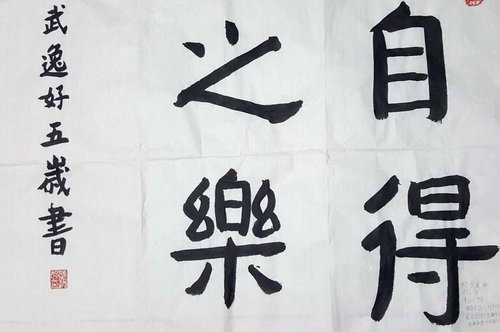 自得
之樂
武逸好五歲書